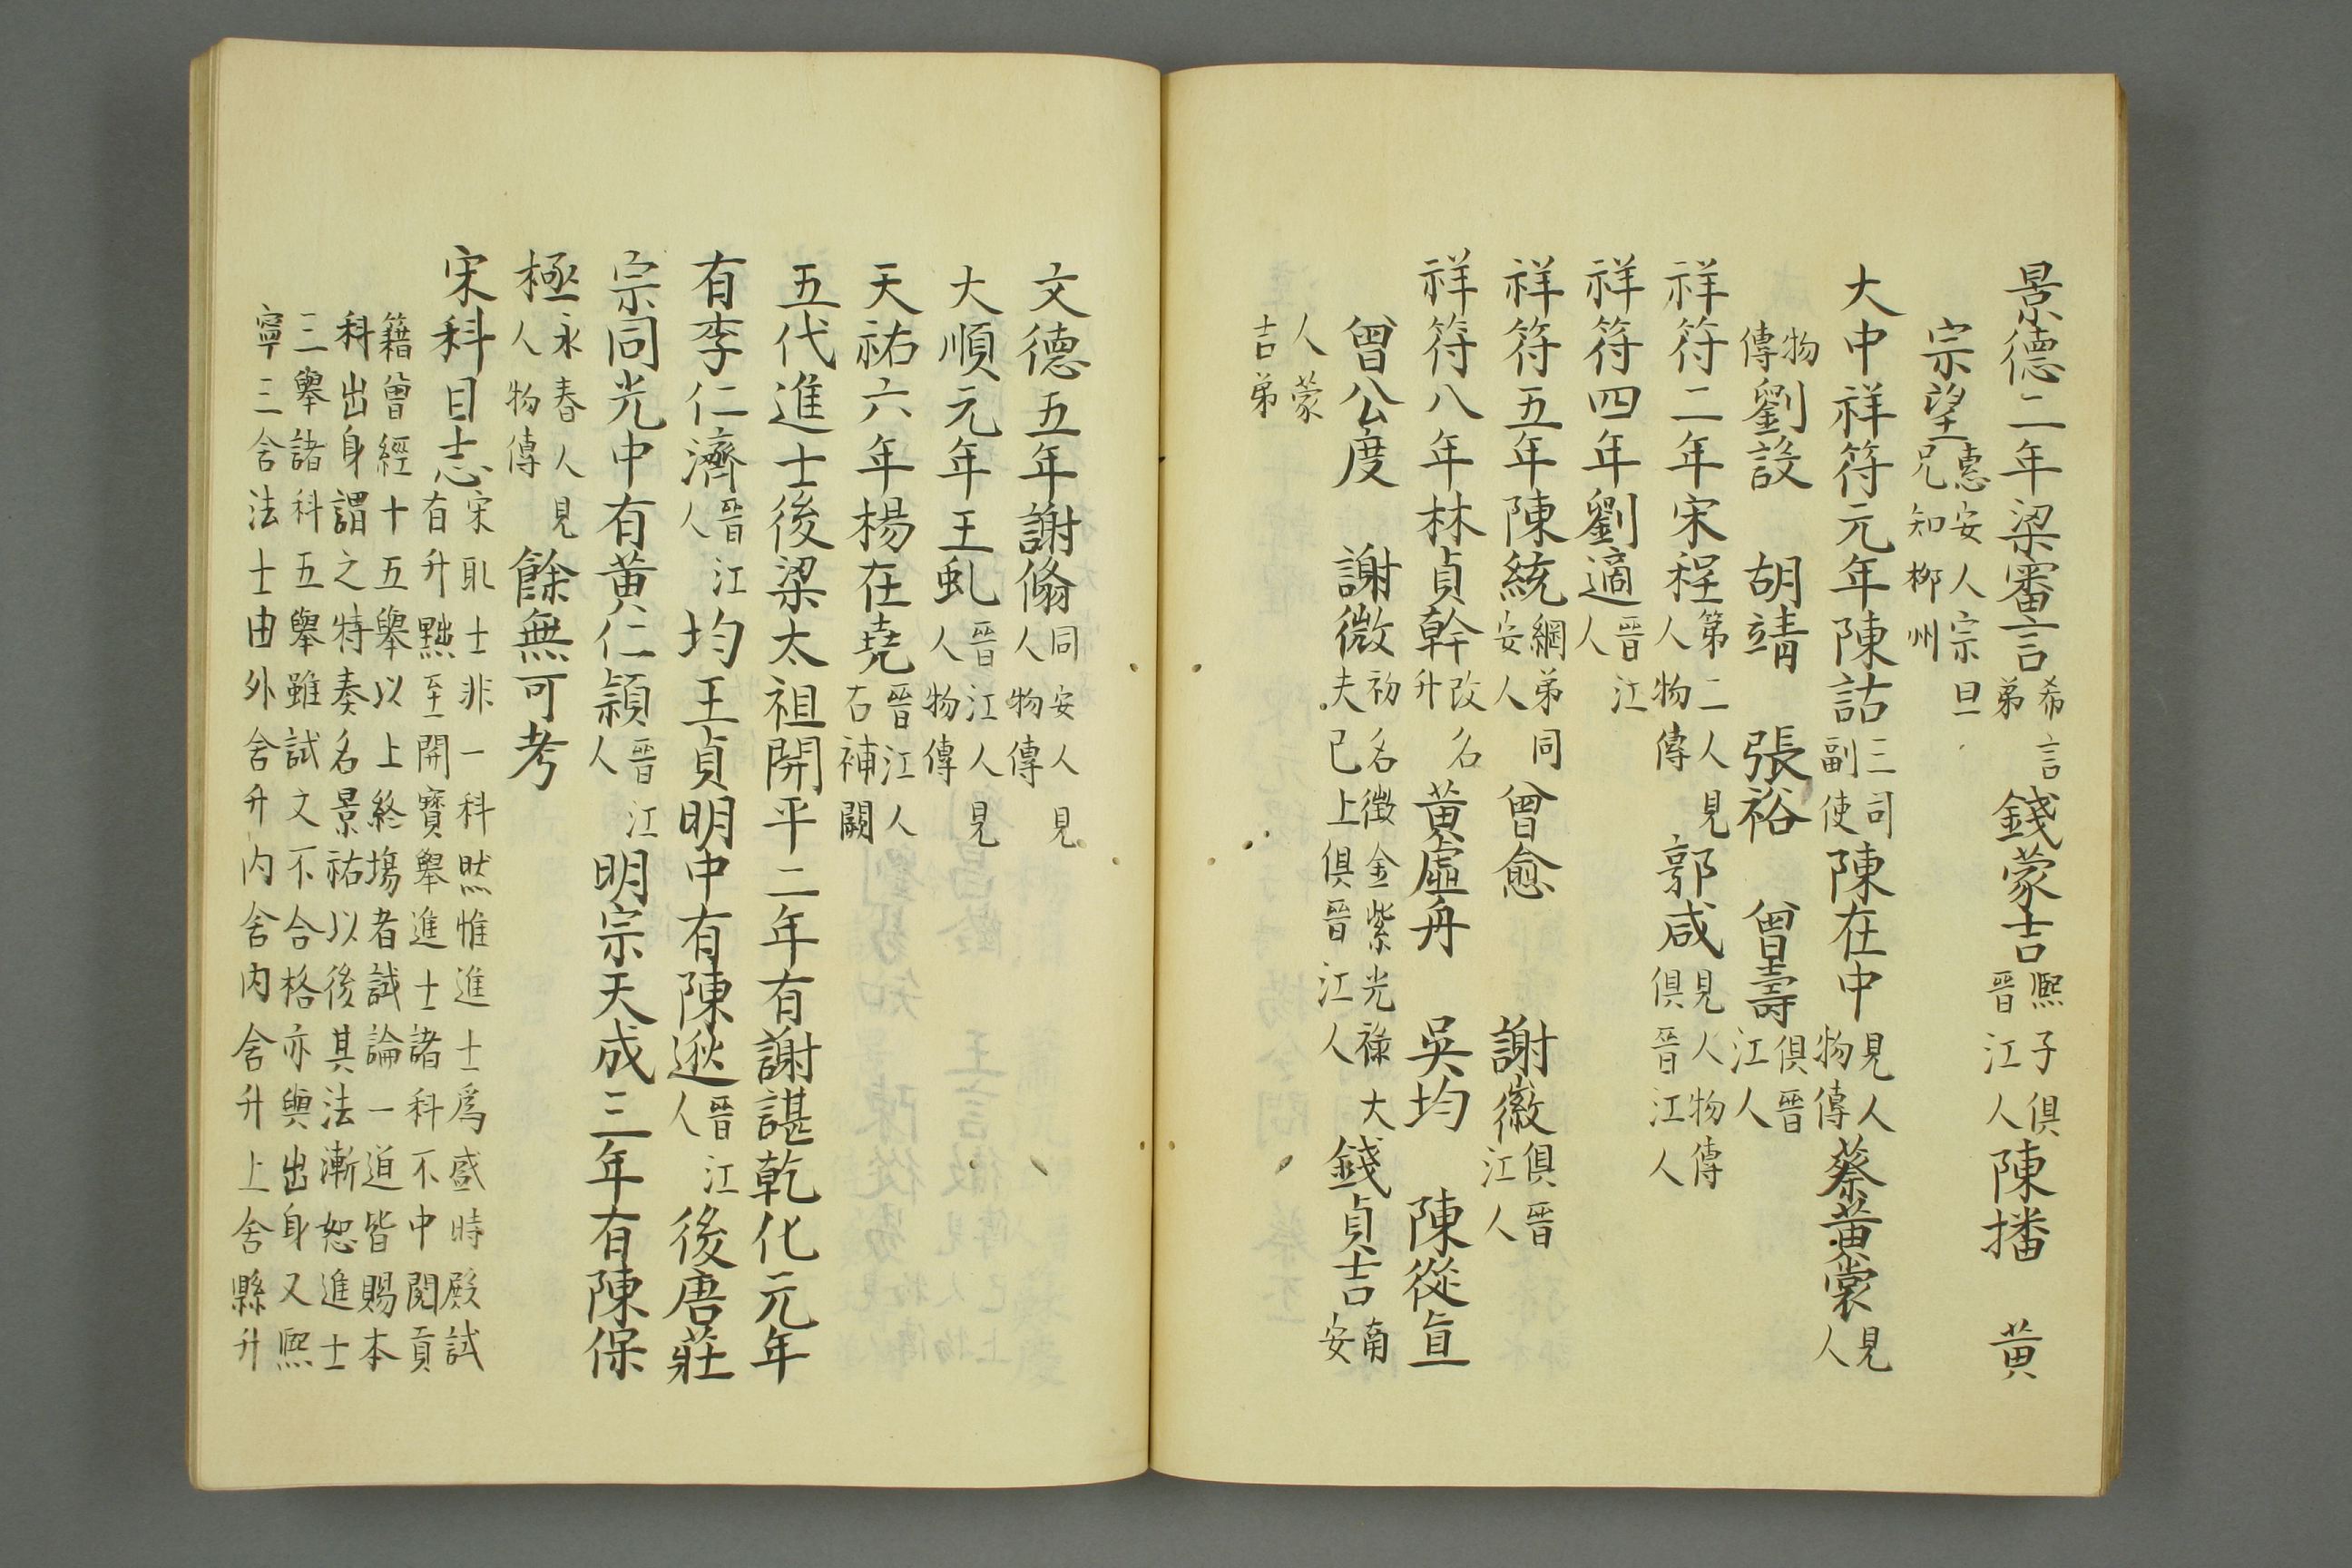 景德二年梁審言希言弟錢蒙吉熙子俱晉江人陳播　黃
宗望惠安人宗旦兄知柳州
大中祥符元年陳詁三司副使陳在中見人物傳蔡黃裳見人
物傳劉設　胡靖　張裕　曾壽俱晉江人
祥符二年宋程第二人見人物傳郭咸見人物傳俱晉江人
祥符四年劉適晉江人
祥符五年陳統綱弟同安人曾愈　謝徽俱晉江人
祥符八年林貞幹改名升黃虛舟　吳均　陳從直
曾公度　謝微初名徵金紫光祿大夫已上俱晉江人錢貞吉南安
人蒙吉弟
文德五年謝翛同安人見人物傳
大順元年王虬晉江人見人物傳
天祐六年楊在堯晉江人右補闕
五代進士後梁太祖開平二年有謝諶乾化元年
有李仁濟晉江人均王貞明中有陳逖晉江人後唐莊
宗同光中有黃仁頴晉江人明宗天成三年有陳保
極永春人見人物傳餘無可考
宋科目志宋取士非一科然惟進士爲盛時殿試
有升黜至開寶舉進士諸科不中閱貢
籍曾經十五舉以上終塲者試論一道皆賜本
科出身謂之特奏名景祐以後其法漸恕進士
三舉諸科五舉雖試文不合格亦與出身又熙
寧三舍法士由外舍升內舍內舍升上舍縣升